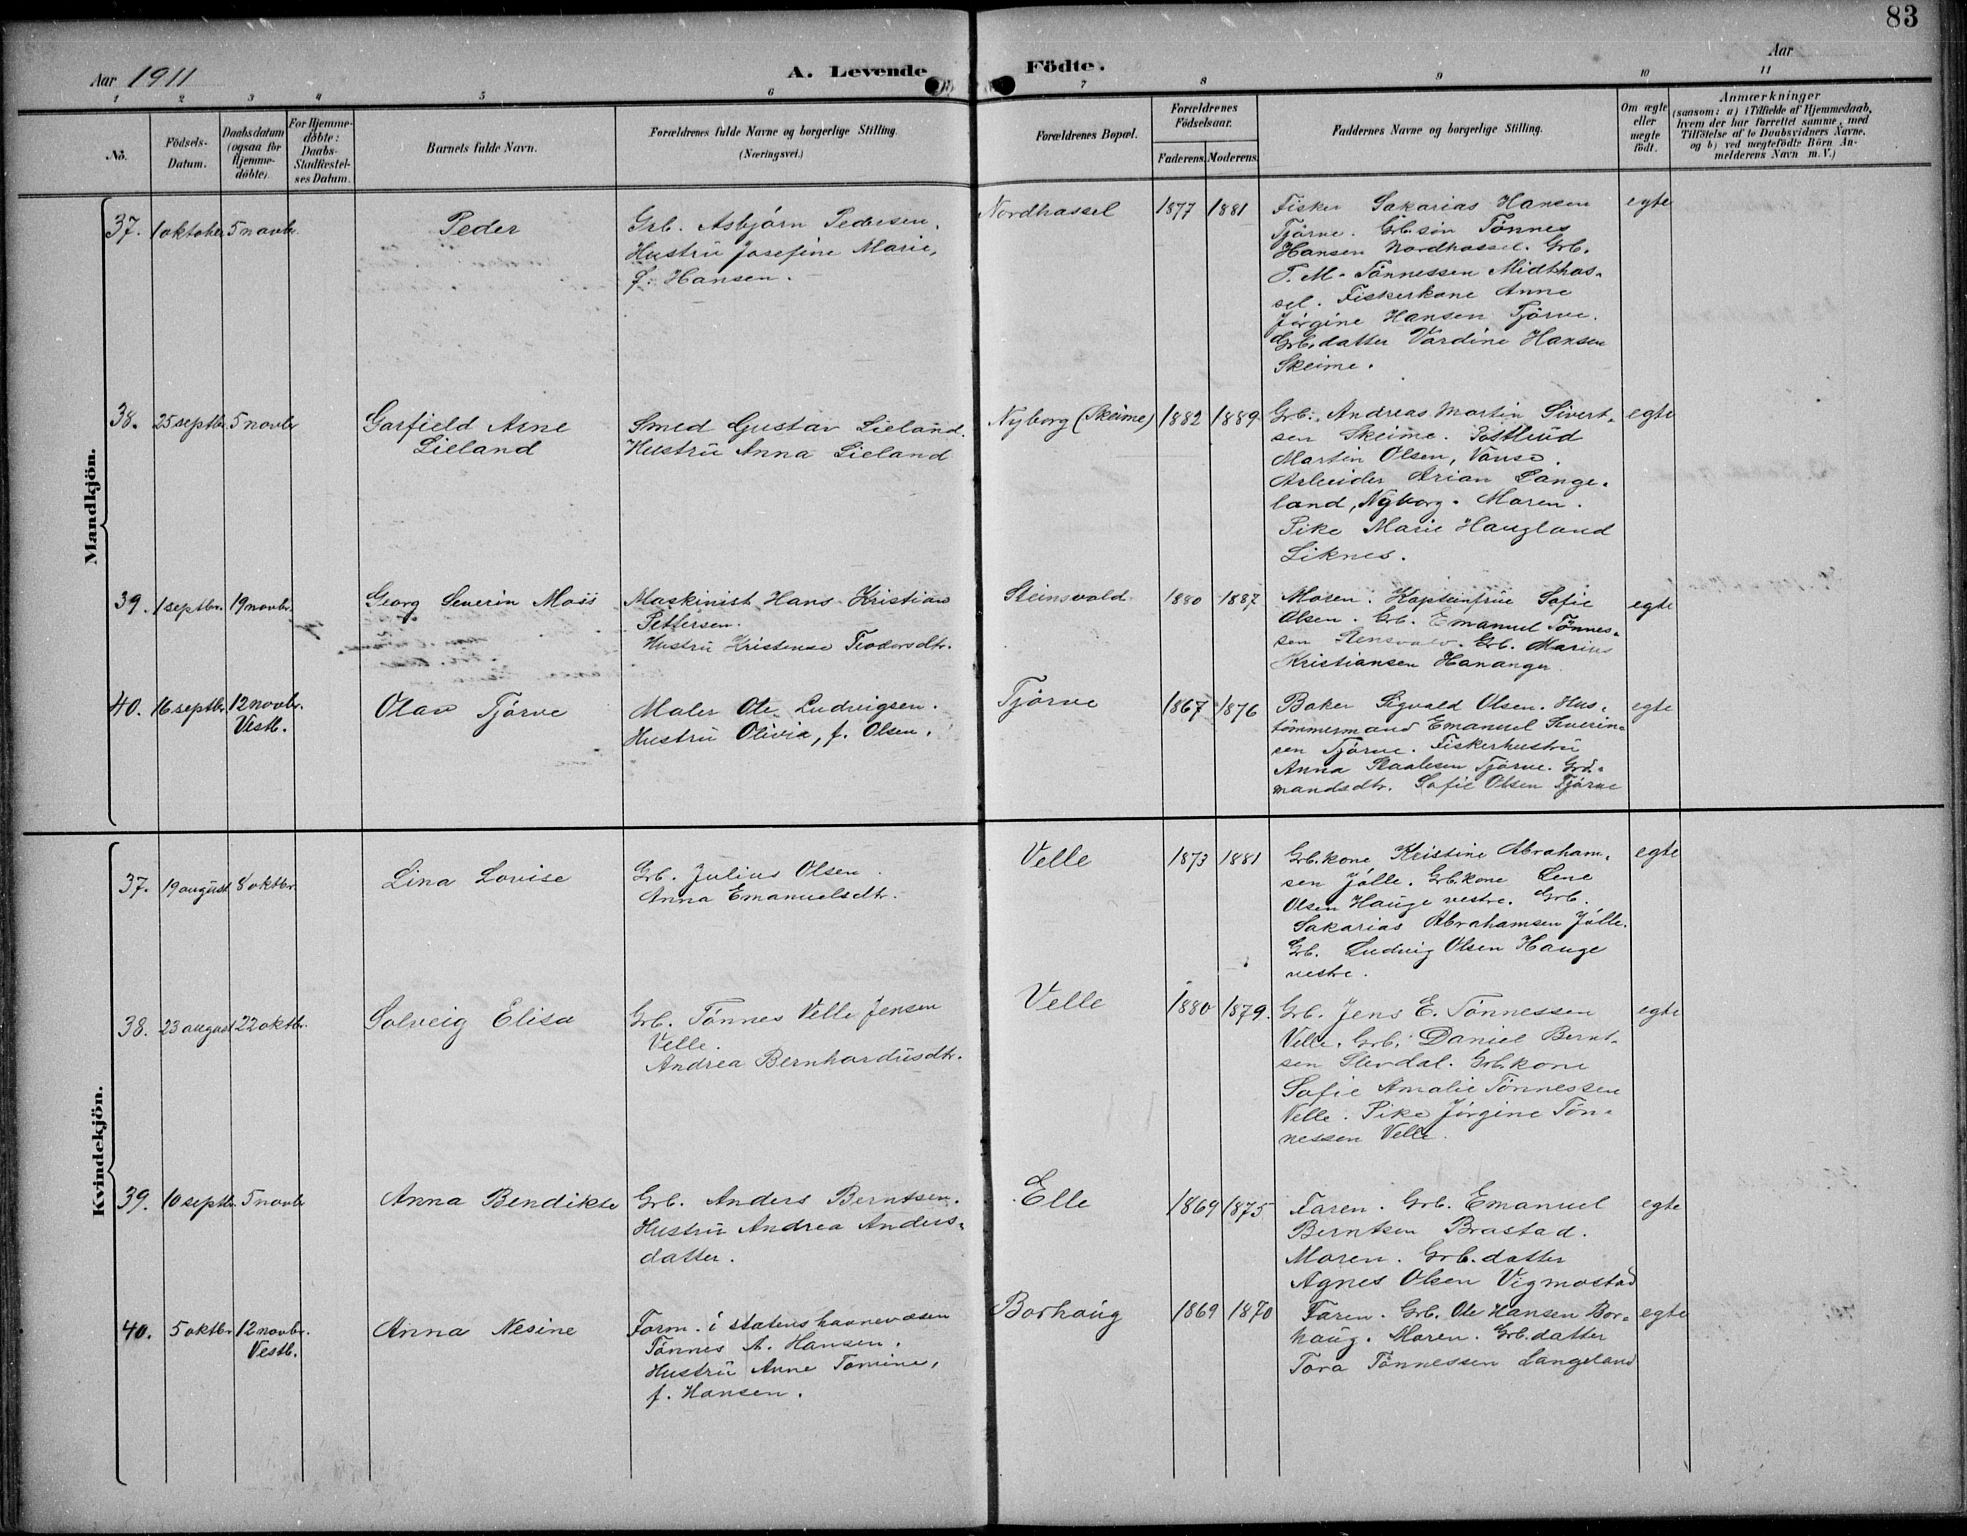 83
Aar 1911
A. Levende
Födte.
Aar
1 2 3 4 5 6 7 8 9 10 11
No.
Födsels-
Datum.
Daabsdatum
(ogsaa for
Hjemme-
döbte).
For Hjemme-
döbte:
Daabs-
Stadfæstel-
ses Datum.
Barnets fulde Navn.
Forældrenes fulde Navne og borgerlige Stilling.
(Næringsvei.)
Forældrenes Bopæl.
Forældrenes
Födselsaar.
Faderens. Moderens.
Faddernes Navne og borgerlige Stilling.
Om ægte
eller
uægte
födt.
Anmærkninger
(saasom: a) i Tilfælde af Hjemmedaab,
hvem der har forrettet samme, med
Tilföielse af to Daabsvidners Navne,
og b) ved uægtefödte Börn An-
melderens Navn m. V.)
Mandkjön.
37. 1 oktober 5 novbr. Peder
Grb. Asbjørn Pedersen.
Hustru Josefine Marie,
f. Hansen.
Nordhassel 1877 1881
Fisker Sakarias Hansen
Tjörve. Grb.søn Tønnes
Hansen Nordhassel. Grb.
T. M. Tønnessen Midthas-
sel. Fiskerkone Anne
Jørgine Hansen Tjørve.
Grb.datter Vardine Hansen
Skeime.
egte
38. 25 septbr 5 novbr
Garfield Arne
Lieland
Smed Gustav Lieland.
Hustru Anna Lieland
Nyborg (Skeime) 1882 1889
Grb. Andreas Martin Sivert-
sen Skeime. Postbud
Martin Olsen, Vanse.
Arbeider Arian Lange-
land, Nyborg. Moren.
Pike Marie Haugland
Liknes.
egte
39. 1 septbr. 19 novbr.
Georg Severin Moss
Maskinist Hans Kristian
Pettersen.
Hustru Kristense Teodorsdtr.
Steinsvold 1880 1887
Moren. Kapteinfrue Sofie
Olsen. Grb. Emanuel Tønnes-
sen Stensvold. Grb. Marius
Kristiansen Hananger
egte
40. 16 septbr. 12 novbr.
Vestb.
Olav Tjörve
Maler Ole Ludvigsen.
Hustru Olivia, f. Olsen.
Tjørve 1867 1876
Baker Sigvald Olsen. Hus-
tømmermand Emanuel Severin-
sen Tjørve. Fiskerhustru
Anna Staalesen Tjørve. Grd-
mandsdtr. Sofie Olsen Tjørve
egte
Kvindekjön.
37. 19 august 8 oktbr.
Lina Lovise
Grb. Julius Olsen.
Anna Emanuelsdtr.
Velle 1873 1881
Grb.kone Kristine Abraham-
sen Jølle. Grb.kone Lene
Olsen Hauge vestre. Grb.
Sakarias Abrahamsen Jølle.
Grb. Ludvig Olsen Hauge
vestre.
egte
38. 23 august 22 oktbr.
Solveig Elisa
Grb. Tønnes Velle Jensen
Velle.
Andrea Bernhardusdtr.
Velle 1880 1879.
Grb. Jens E. Tønnessen
Velle. Grb. Daniel Bernt-
sen Slevdal. Grb.kone
Sofie Amalie Tønnessen
Velle. Pike Jørgine Tøn-
nessen Velle.
egte
39. 10 septbr. 5 novbr
Anna Bendikte
Grb. Anders Berntsen.
Hustru Andrea Anders-
datter.
Elle 1869 1875
Faren. Grb. Emanuel
Berntsen Brastad.
Moren. Grb.datter
Agnes Olsen Vigmostad
egte
40. 5 oktbr 12 novbr.
Vestb.
Anna Nesine
Form. i statens havnevæsen
Tønnes A. Hansen.
Hustru Anne Tomine,
f. Hansen.
Borhaug 1869 1870
Faren. Grb. Ole Hansen Bor-
haug. Moren. Grb.datter
Tora Tønnessen Langeland
egte